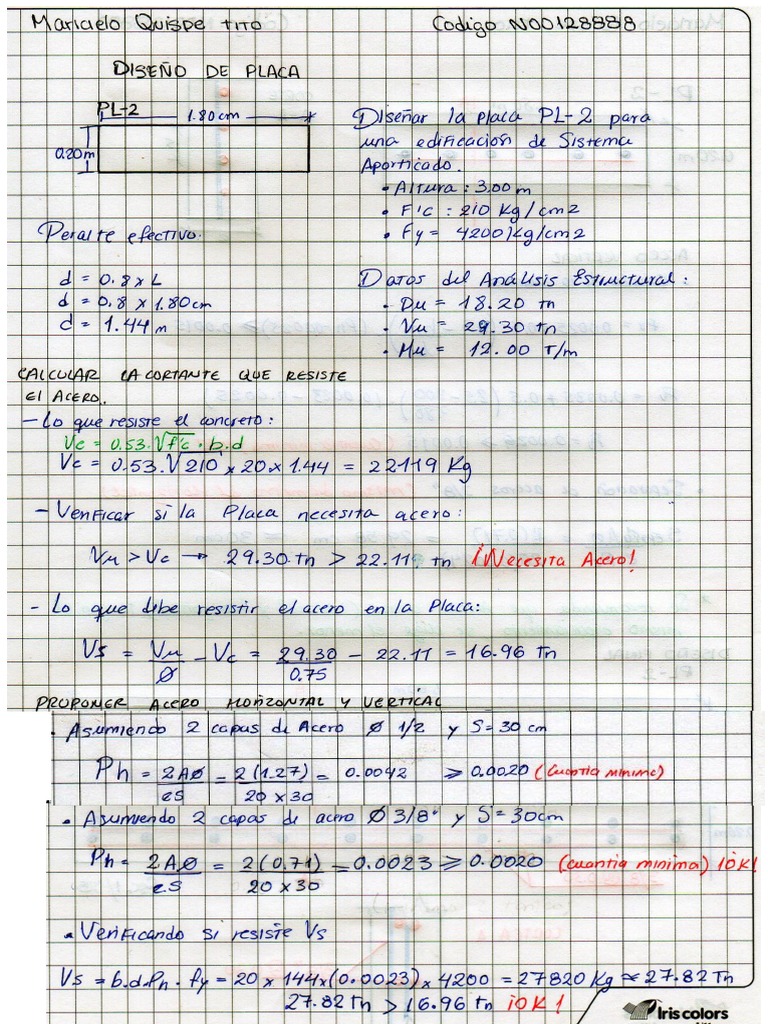 Maricielo Quispe Tito
Codigo N00128888
DISEÑO DE PLACA
PL-2
1.80cm
0.20m
Diseñar la placa PL-2 para
una edificación de Sistema
Aporticado.
• Altura : 3.00 m
• F'c : 210 Kg/cm2
• Fy = 4200 Kg/cm2
Peralte efectivo.
d = 0.8 x L
d = 0.8 x 1.80cm
d = 1.44 m
Datos del Análisis Estructural :
• Du = 18.20 tn
• Vu = 29.30 tn
• Mu = 12.00 T/m
CALCULAR LA CORTANTE QUE RESISTE
El ACERO..
- Lo que resiste el concreto :
Vc = 0.53.√f'c . b.d
Vc = 0.53.√210 x 20 x 1.44 = 22119 Kg
- Verificar si la Placa necesita acero:
Vu > Vc → 29.30.tn > 22.11. tn ¡Necesita Acero!
- Lo que debe resistir el acero en la Placa:
Vs = Vu/Ø - Vc = 29.30/0.75 - 22.11 = 16.96 Tn
PROPONER ACERO HORIZONTAL Y VERTICAL
• Asumiendo 2 capas de Acero Ø 1/2 y S = 30 cm
Ph = 2AØ/es = 2(1.27)/20 x 30 = 0.0042 ≥ 0.0020 (Cuantia minima)
• Asumiendo 2 capas de acero Ø 3/8" y S = 30cm
Ph = 2AØ/es = 2(0.71)/20 x 30 = 0.0023 ≥ 0.0020 (cuantia minima) ¡OK!
• Verificando si resiste Vs
Vs = b.d.Ph . fy = 20 x 144 x (0.0023) x 4200 = 27820 Kg ≈ 27.82 Tn
27.82 Tn > 16.96 tn ¡OK!
Iris colors